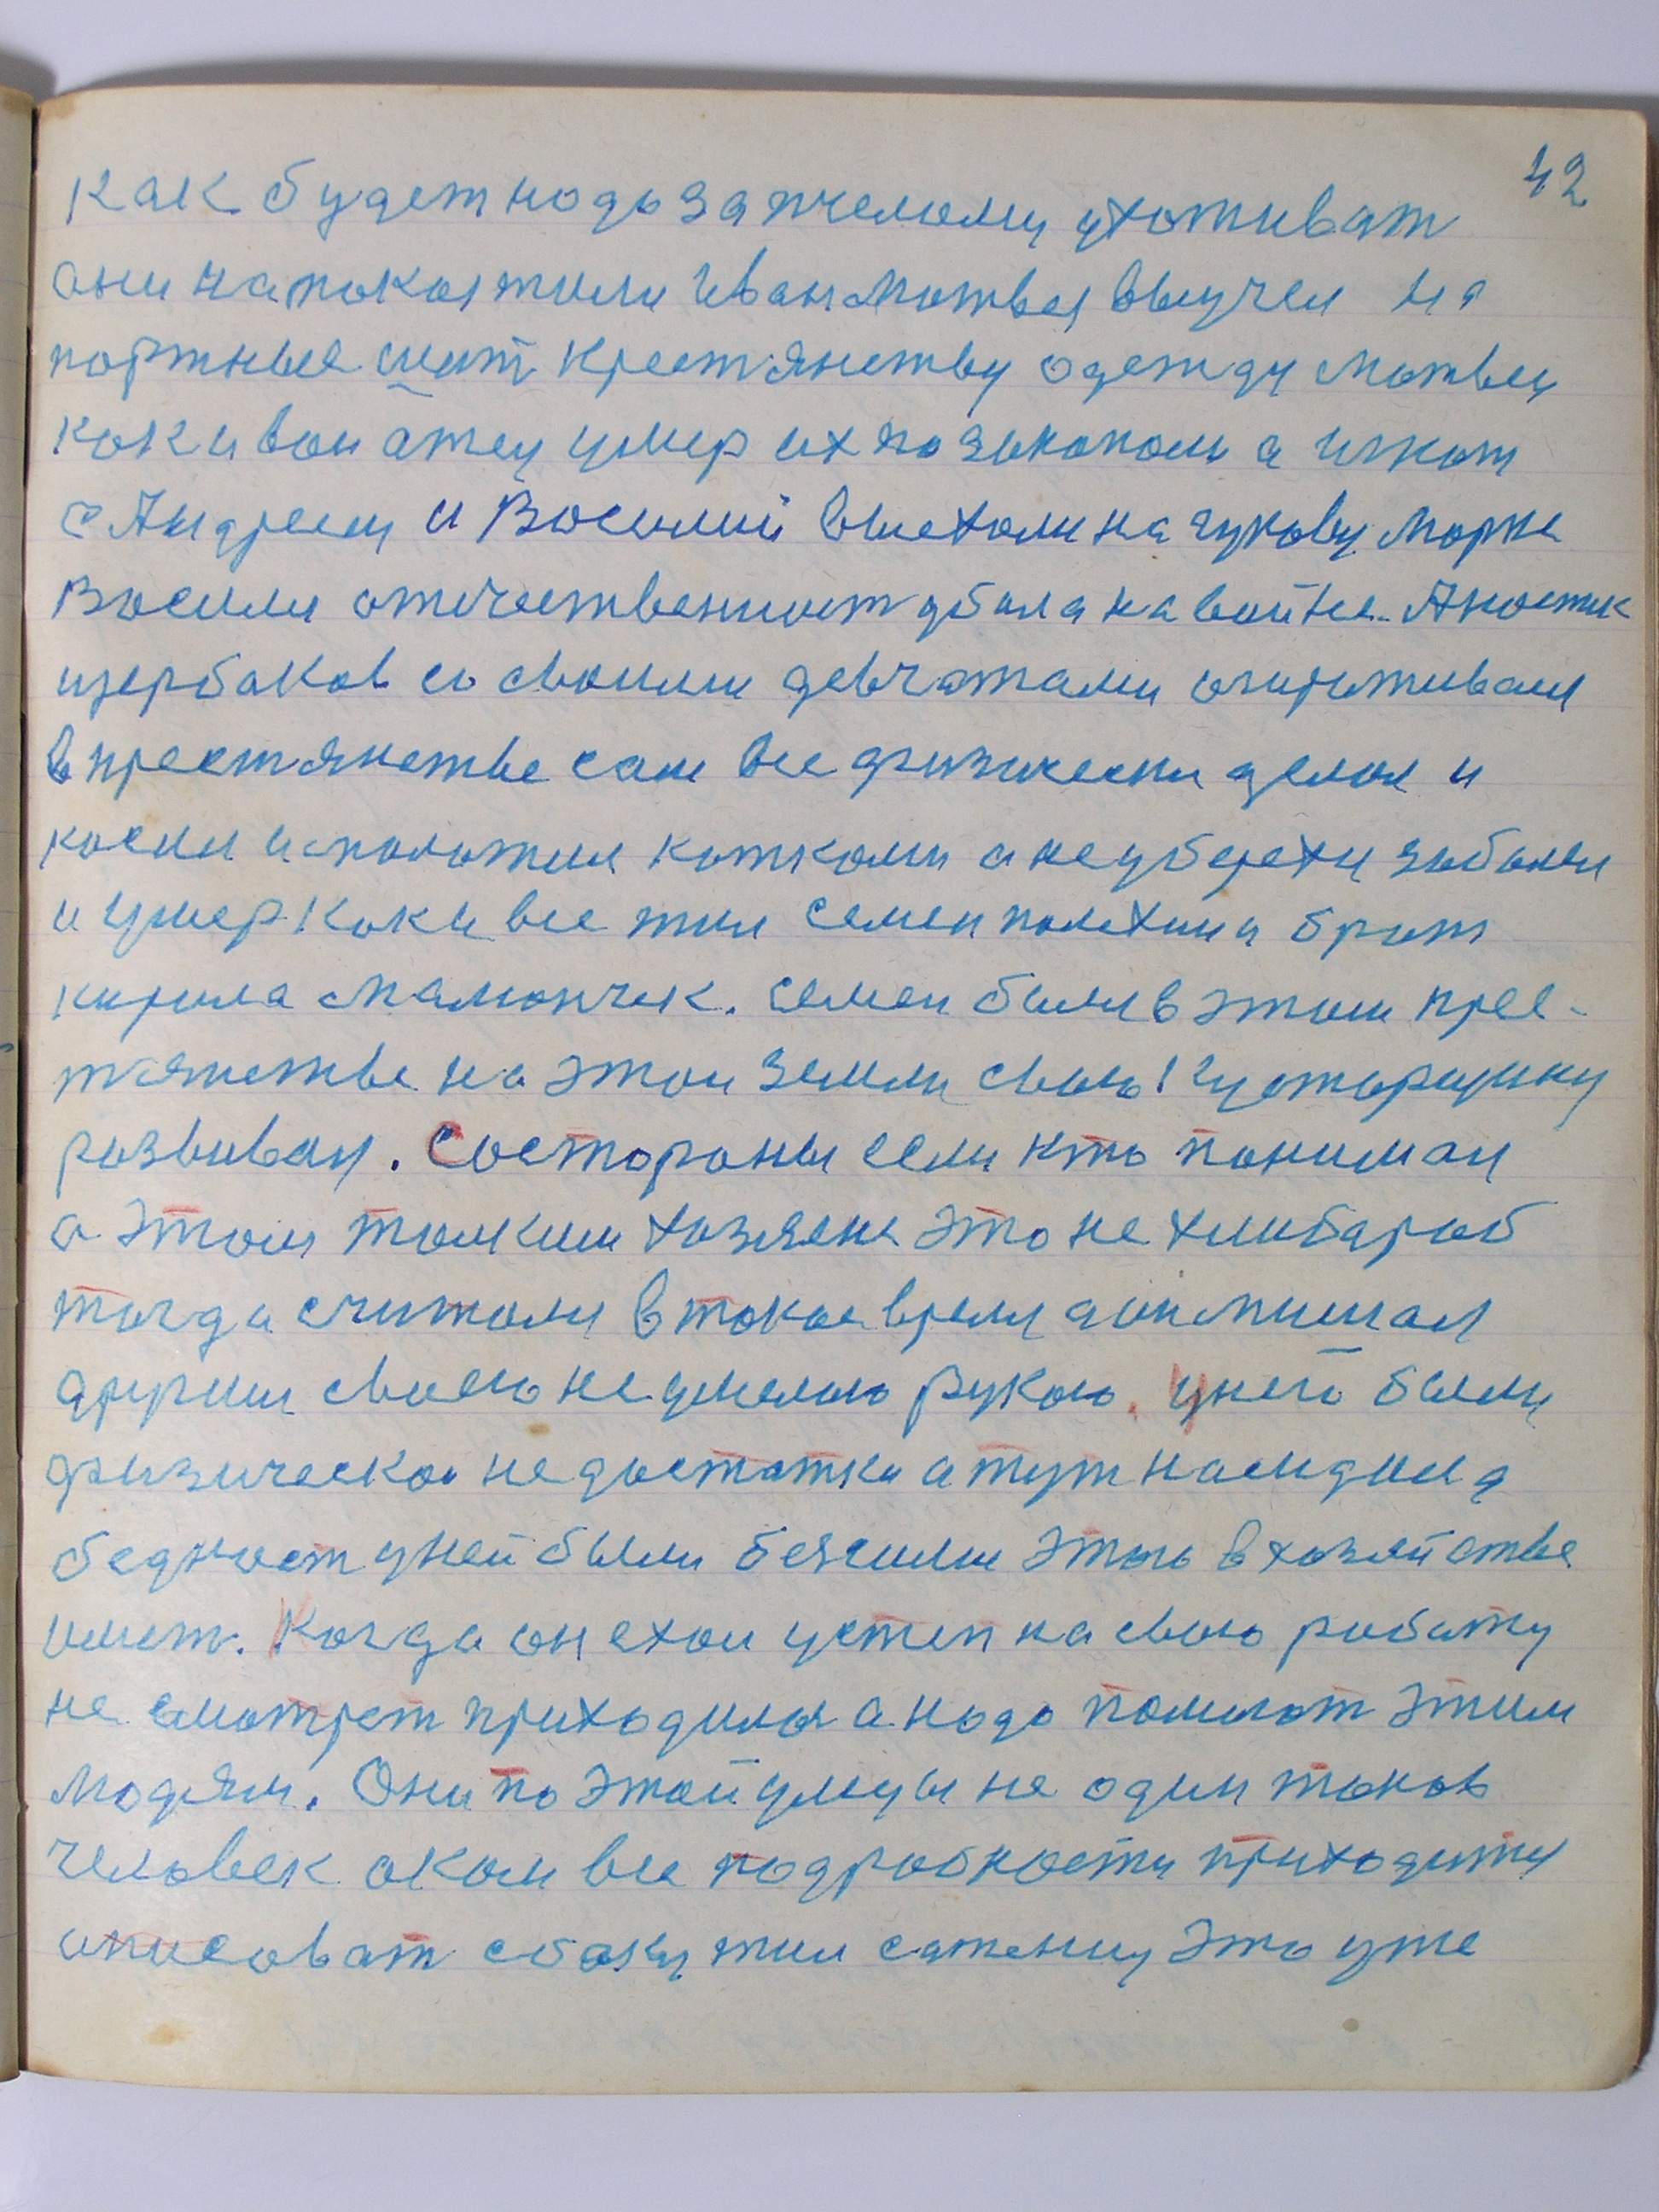 42
как будет надо за пчелами ухаживат
они на пока жили Иван Матвея выучел на
портные шит крестянству одежду матвей
как и вои атец умер их по законом а
с Андреем и Василий выехали на марке
Василя отечественност убила на войне. Аностик
щербаков со своими девчатами
в крестянстве сам все физически делал и
косил и положил а не убереги забалел
и умер как и все жил семен палехин и брат
кирила мамончик. семен был в этом крес-
тянстве на этой земли свою
развивал. Состороны если кто понимал
а этом таким хазяене это не хлибароб
тогда считали в такое время а он
своею не умелою рукою. у него были
физическои недостатки а тут
бедност у ней были этого в хозяйстве
имет. Когда он ехал устеп на свою работу
не смотрет приходился а надо помогат этим
людям. Они по этой улицы не один таков
человек о ком все подробности приходится
описоват сбоку жил это уже